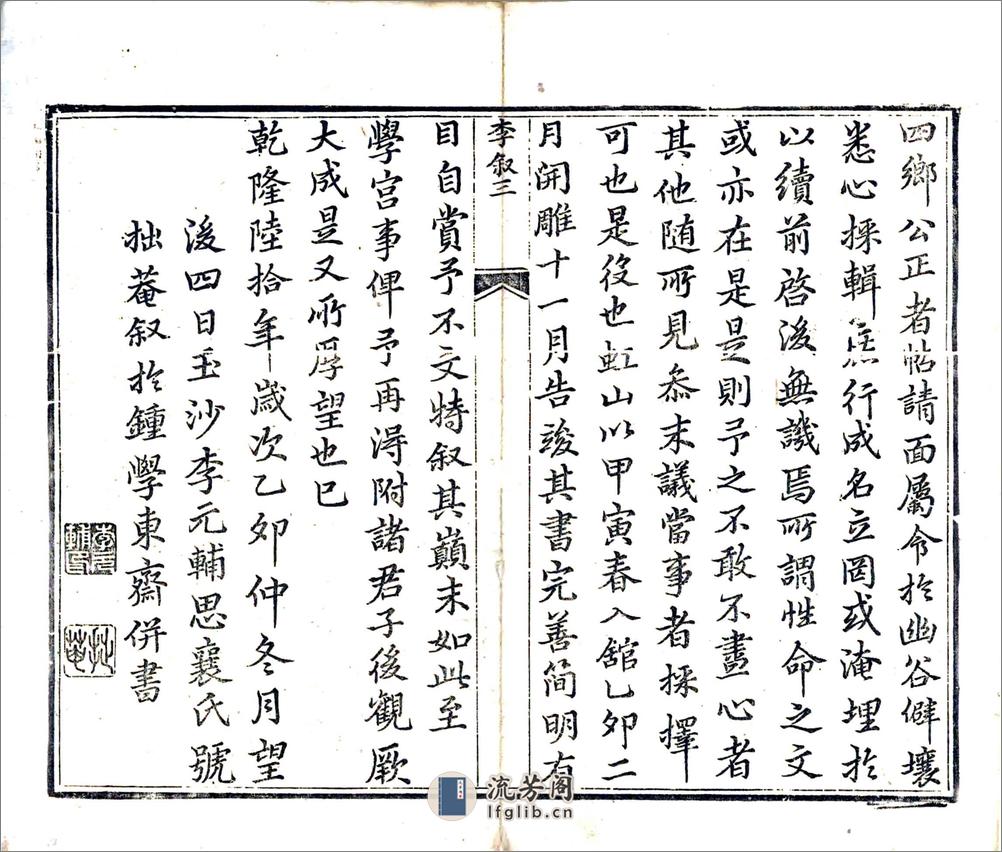 四鄉公正者帖請面屬令扵幽谷僻壤
悉心採輯庶行成名立罔或淹埋扵
以續前啓後無譏焉所謂性命之文
或亦在是是則予之不敢不盡心者
其他随所見叅末議當事者採擇
可也是役也虹山以甲寅春入舘乙夘二
月開雕十一月告竣其書完善簡明有
李叙三
目自賞予不文特叙其巔末如此至
學宫事俾予再得附諸君子後觀厥
大成是又所厚望也已
乾隆陸拾年歲次乙夘仲冬月望
後四日玉沙李元輔思襄氏號
拙菴叙扵鍾學東齋併書
李元輔印
拙菴
流芳阁
lfglib.cn